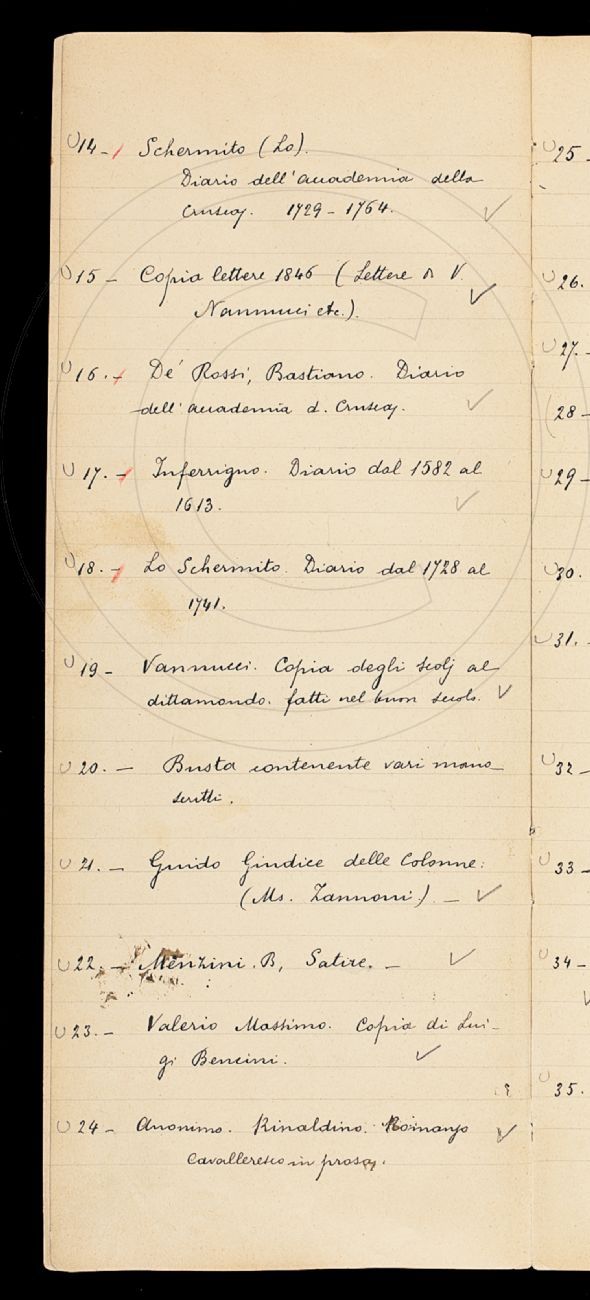 14 - Schermito (Lo).
Diario dell'accademia della
Crusca. 1729 - 1764.
15 - Copia lettere 1846 (Lettere di V.
Nannucci etc.).
16. - De' Rossi, Bastiano. Diario
dell'accademia d. Crusca.
17. - Inferrigno. Diario dal 1582 al
1613.
18. - Lo Schermito. Diario dal 1728 al
1741.
19 - Vannucci. Copia degli scolj al
dittamondo. fatti nel buon secolo.
20. - Busta contenente vari mano
scritti.
21. - Guido Giudice delle Colonne:
(Ms. Zannoni). -
22. - Menzini. B, Satire. -
23. - Valerio Massimo. Copia di Lui-
gi Bencini.
24 - Anonimo. Rinaldino. Romanzo
Cavalleresco in prosa.
25 -
26.
27. -
28 -
29 -
30.
31. -
32 -
33 -
34 -
35.